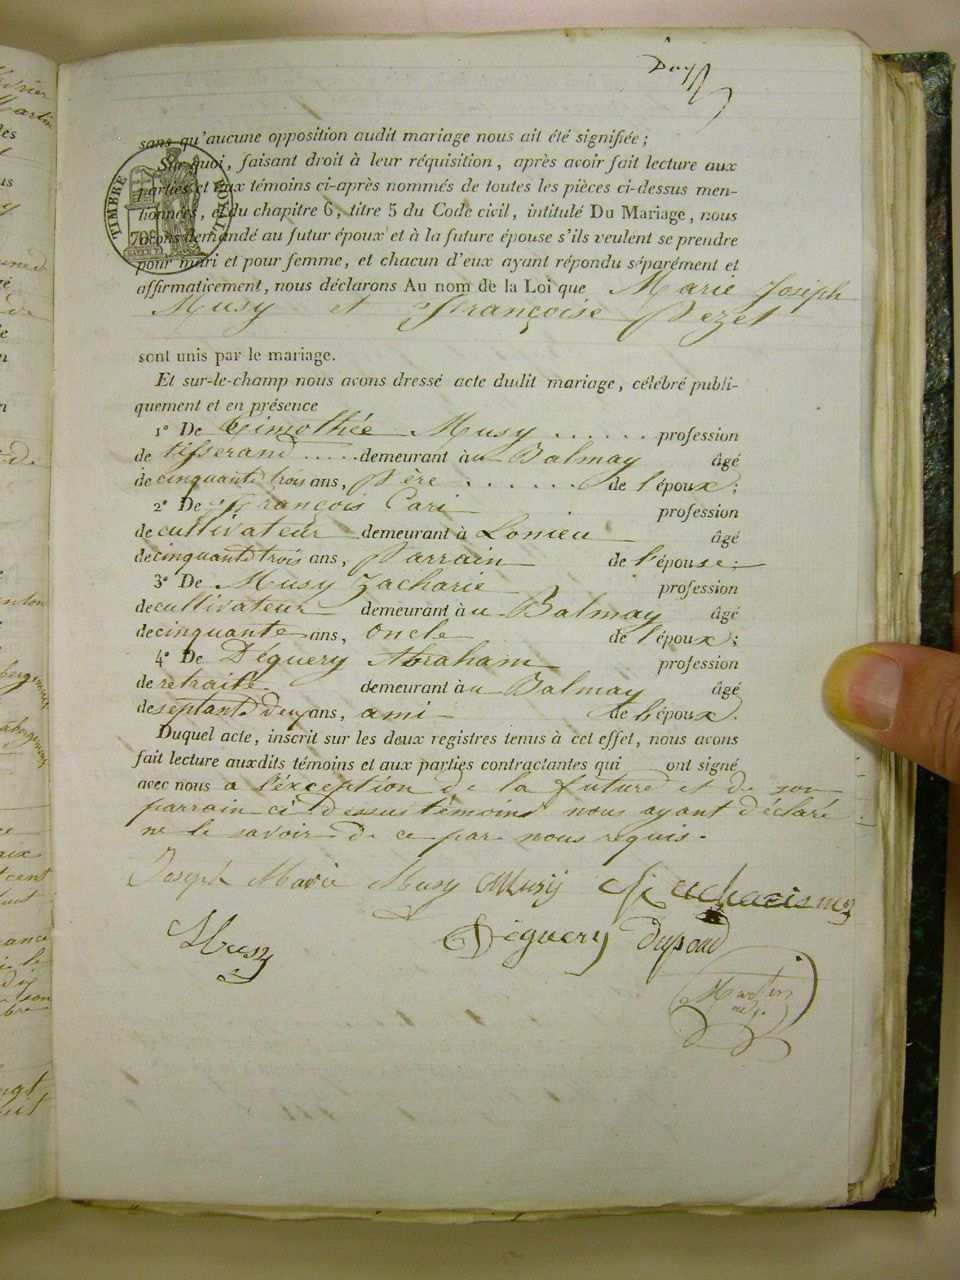 sans qu'aucune opposition audit mariage nous ait été signifiée ;
Sur quoi, faisant droit à leur réquisition, après avoir fait lecture aux
parties et aux témoins ci-après nommés de toutes les pièces ci-dessus men-
tionnées, et du chapitre 6, titre 5 du Code civil, intitulé Du Mariage, nous
avons demandé au futur époux et à la future épouse s'ils veulent se prendre
pour mari et pour femme, et chacun d'eux ayant répondu séparément et
affirmativement, nous déclarons Au nom de la Loi que Marie Joseph
Musy et Françoise Pezet
sont unis par le mariage.
Et sur-le-champ nous avons dressé acte dudit mariage, célébré publi-
quement et en présence
1° De Timothée Musy ...... profession
de tisserand ..... demeurant à u Balmay âgé
de cinquante trois ans, Père ....... de l'époux ;
2° De François Cari profession
de cultivateur demeurant à Lonieu âgé
de cinquante trois ans, Parrain de l'épouse ;
3° De Musy Zacharie profession
de cultivateur demeurant à u Balmay âgé
de cinquante ans, oncle de l'époux ;
4° De Déguery Abraham profession
de retraité demeurant à u Balmay âgé
de septante deux ans, ami de l'époux.
Duquel acte, inscrit sur les deux registres tenus à cet effet, nous avons
fait lecture auxdits témoins et aux parties contractantes qui ont signé
avec nous a l'exception de la future et de son
parrain ci dessus témoins nous ayant déclaré
ne le savoir de ce par nous requis.
Joseph Marie Musy Musy
Musy Déguery Dupond
Martin
TIMBRE ROYAL